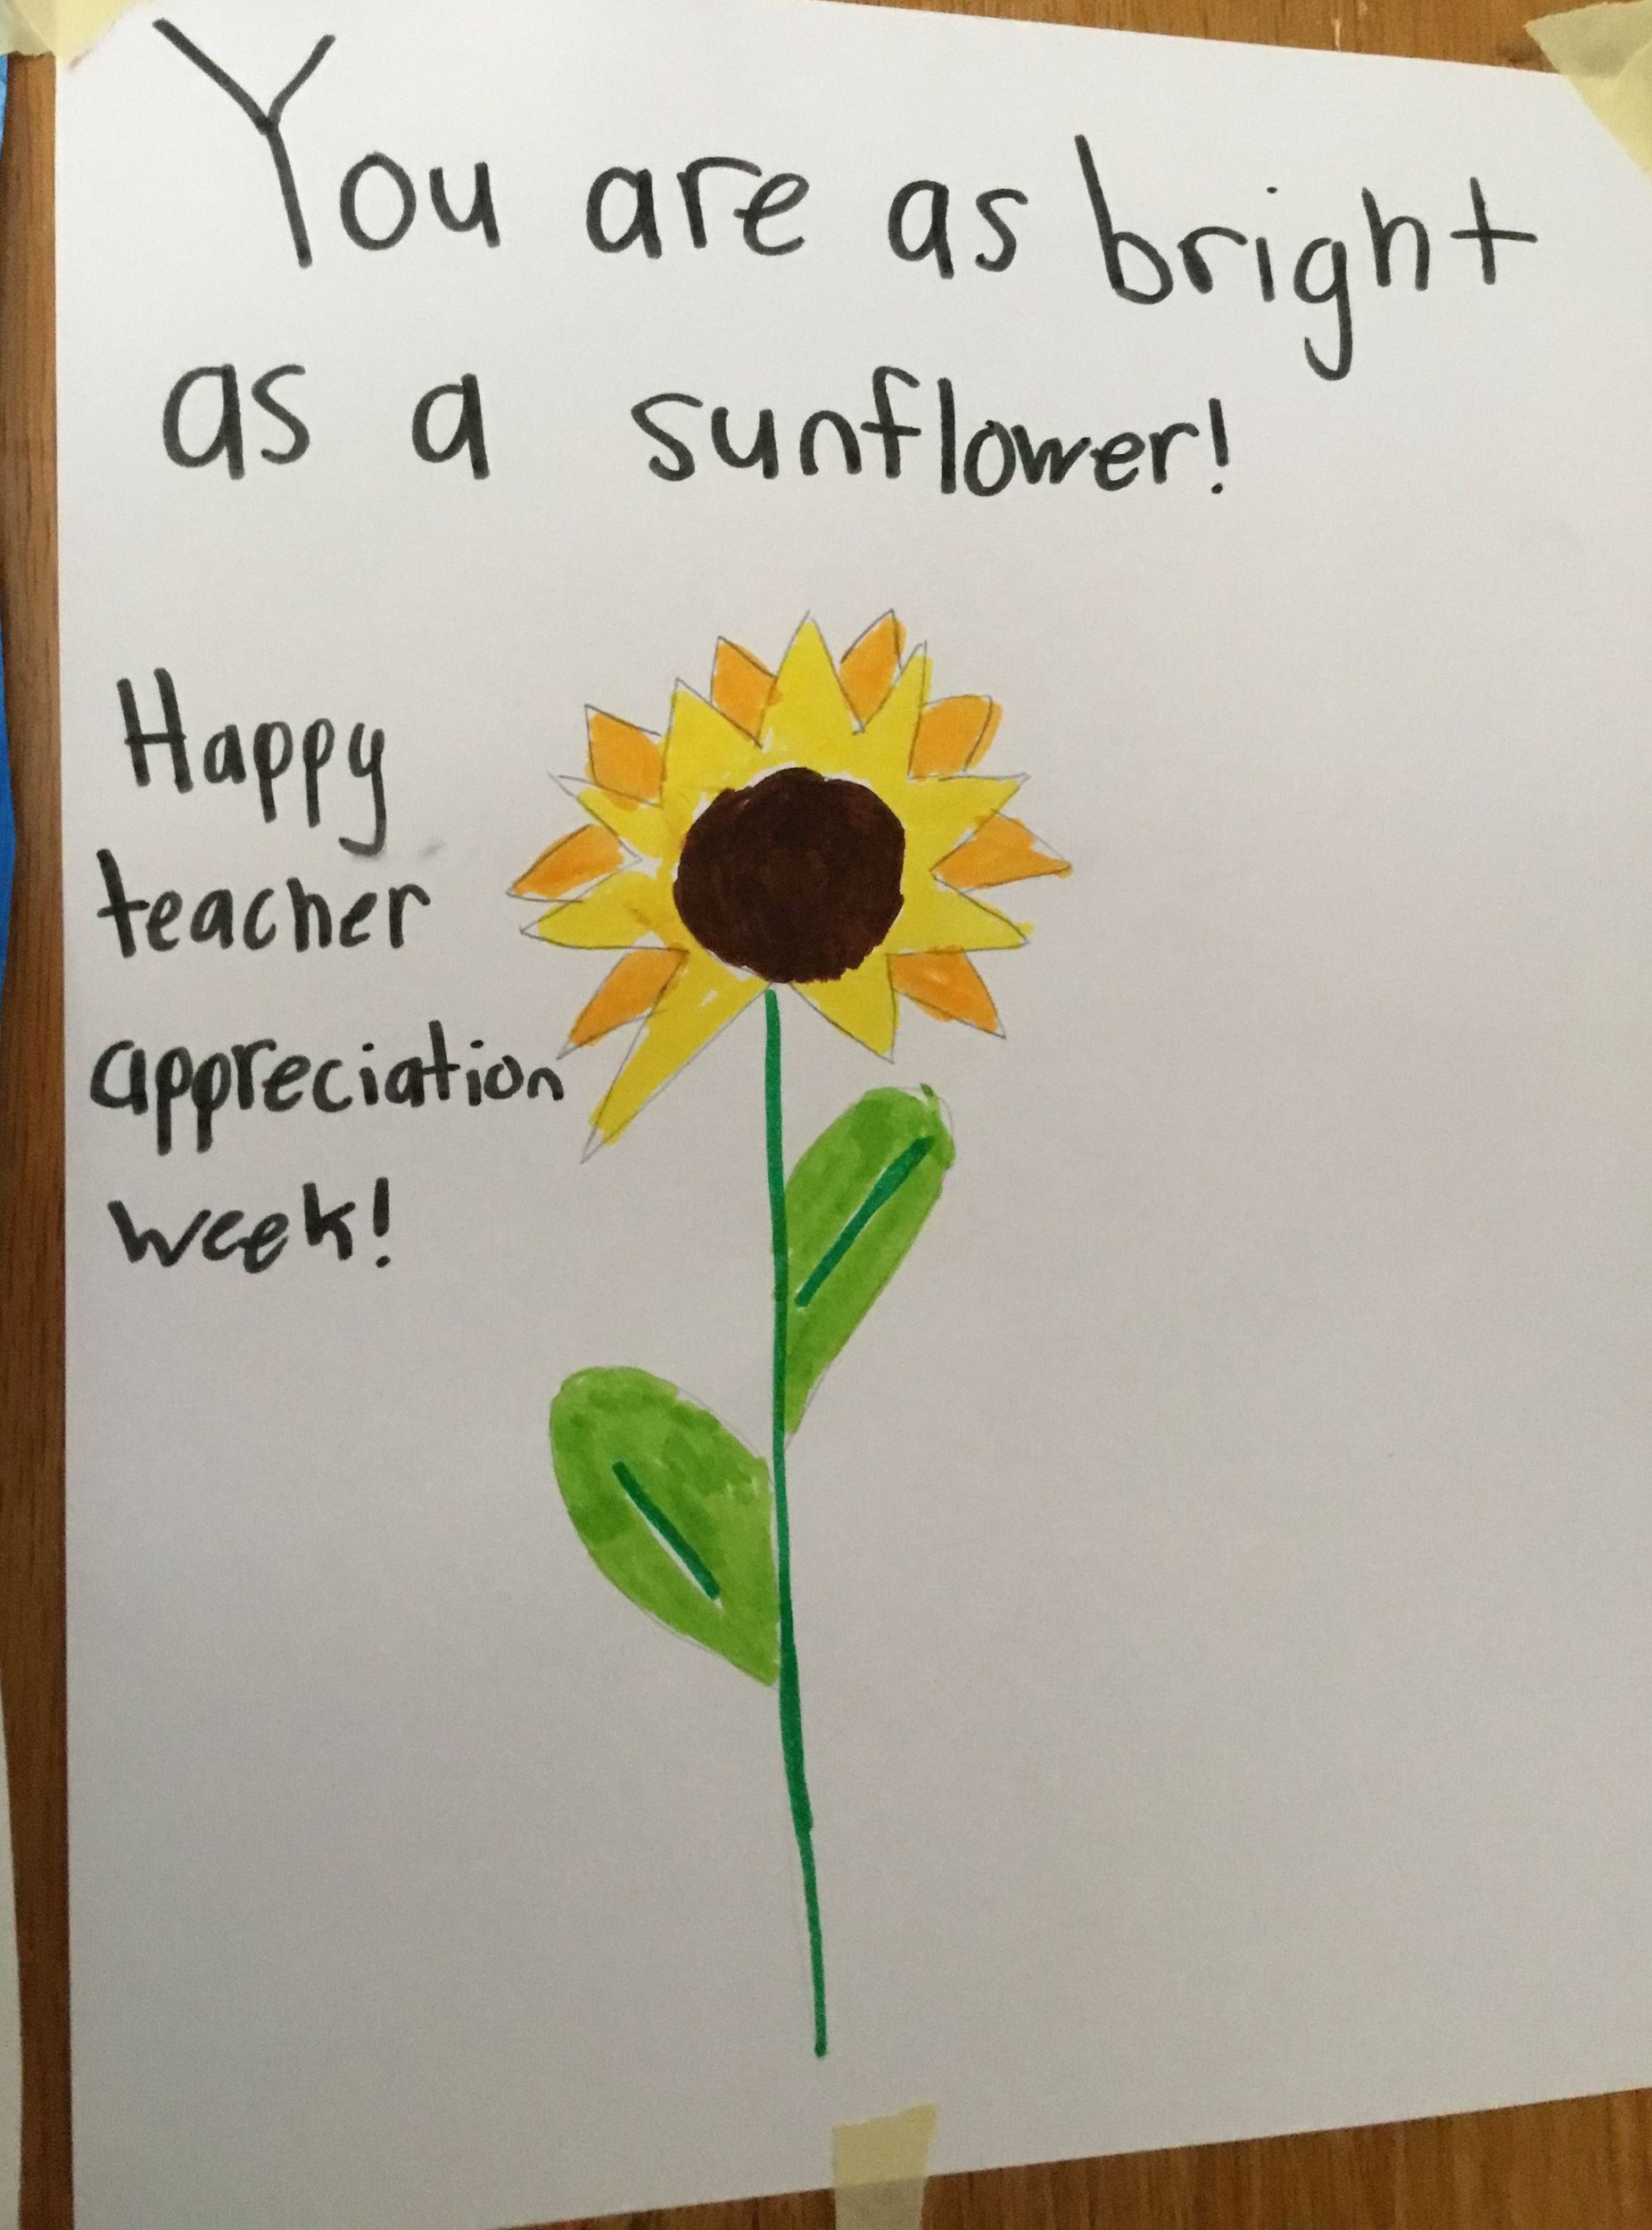 You are as bright
as a sunflower!
Happy
teacher
appreciation
week!